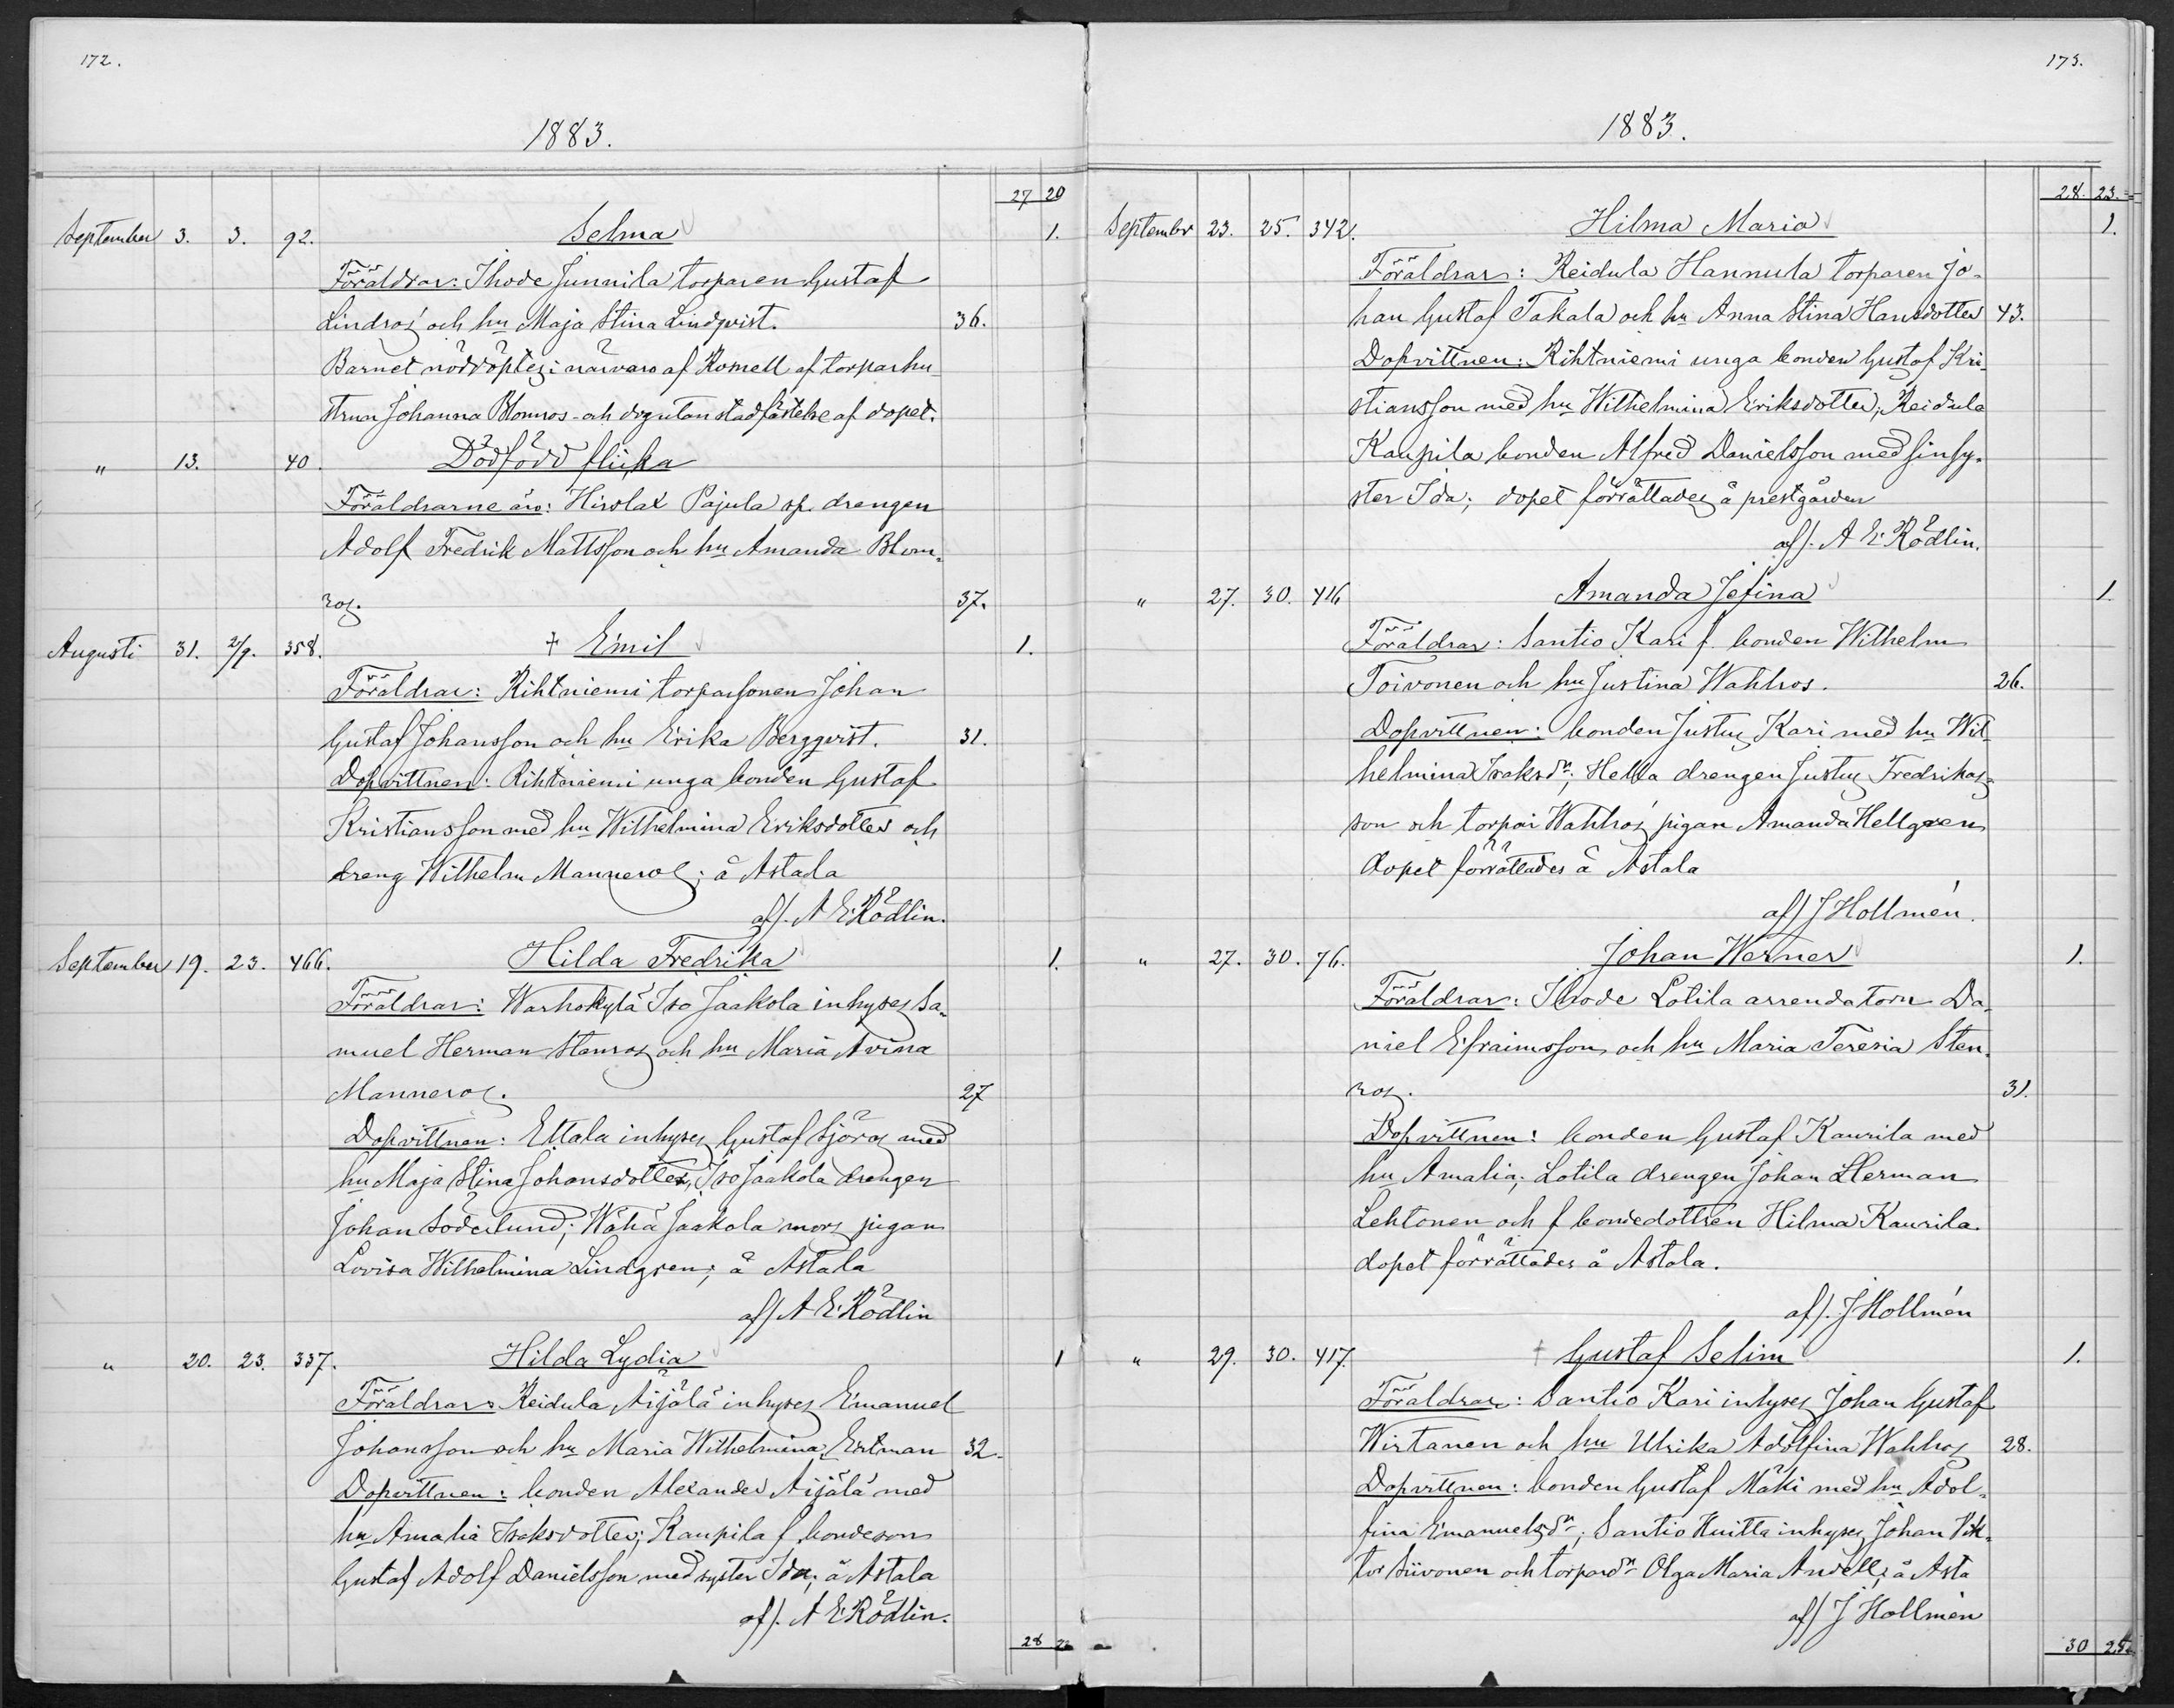 172.
1883.
27 20
September 3. 3. 92. Selma 1.
Föräldrar: Ihode Junnila torparen Gustaf
Lindros och hu Maja Stina Lindqvist. 36.
Barnet nöddöptes i närvaro af Romell af torparhu
strun Johanna Blomros och dog utan stadfästelse af dopet.
" 13. 40. Dödfödd flicka
Föräldrarne äro: Hirslax Pajula sp. drengen
Adolf Fredrik Mattsson och hu Amanda Blom-
ros. 37.
Augusti 31. 2/9. 358. + Emil 1.
Föräldrar: Rihtniemi torparsonen Johan
Gustaf Johansson och hu Erika Bergqvist. 31.
Dopvittnen: Rihtniemi unga bonden Gustaf
Kristiansson med hu Wilhelmina Eriksdotter och
dreng Wilhelm Manneros; å Astala
af/. A E Rödlin.
September 19. 23. 466. Hilda Fredrika 1.
Föräldrar: Warhokylä Iso Jaakola inhyses Sa-
muel Herman Stenros och hu Maria Avina
Manneros. 27
Dopvittnen: Ettala inhyses Gustaf Sjöros med
hu Maja Stina Johansdotter, Iso Jaakola drengen
Johan Söderlund; Wähä Jaakola mors pigan
Lovisa Wilhelmina Lindgren; å Astala
af/ A E Rödlin
" 20. 23. 337. Hilda Lydia 1
Föräldrar: Reidula Äijälä inhyses Emanuel
Johansson och hu Maria Wilhelmina Estman 32.
Dopvittnen: bonden Alexander Äijälä med
hu Amalia Isaksdotter; Kaupila f. bondeson
Gustaf Adolf Danielsson med syster Ida; å Astala
af/. A E Rödlin.
28 23
173.
1883.
28. 23.
September 23. 25. 342. Hilma Maria 1.
Föräldrar: Reidula Hannula torparen Jo-
han Gustaf Takala och hu Anna Stina Hansdotter 43.
Dopvittnen: Rihtniemi unga bonden Gustaf Kri-
stiansson med hu Wilhelmina Eriksdotter; Reidula
Kaupila bonden Alfred Danielsson med sin sy-
ster Ida; dopet förrättades å prestgården
af/. A E Rödlin.
" 27. 30. 416 Amanda Josefina 1
Föräldrar: Santio Kari f. bonden Wilhelm
Toivonen och hu Justina Wahlros. 26.
Dopvittnen: bonden Justus Kari med hu Wil-
helmina Isaksdr; Hella drengen Justus Fredriks-
son och torpar Wahlros pigan Amanda Hellgren
dopet förrättades å Astala
af/ J Hollmén.
" 27. 30. 76. Johan Werner 1.
Föräldrar: Ihode Lotila arrendatorn Da-
niel Efraimsson och hu Maria Teresia Sten-
ros. 31.
Dopvittnen: bonden Gustaf Kaurila med
hu Amalia; Lotila drengen Johan Herman
Lehtonen och f bondedottren Hilma Kaurila.
dopet förrättades å Astala.
af/. J Hollmén
" 29. 30. 417. + Gustaf Selim 1.
Föräldrar: Santio Kari inhyses Johan Gustaf
Wirtanen och hu Ulrika Adolfina Wahlros 28.
Dopvittnen: bonden Gustaf Mäki med hu Adol-
fina Emanuelsdr; Santio Huitta inhyses Johan Vik-
tor Siivonen och torpardr Olga Maria Andell; å Asta
af/ J Hollmén
30 25.